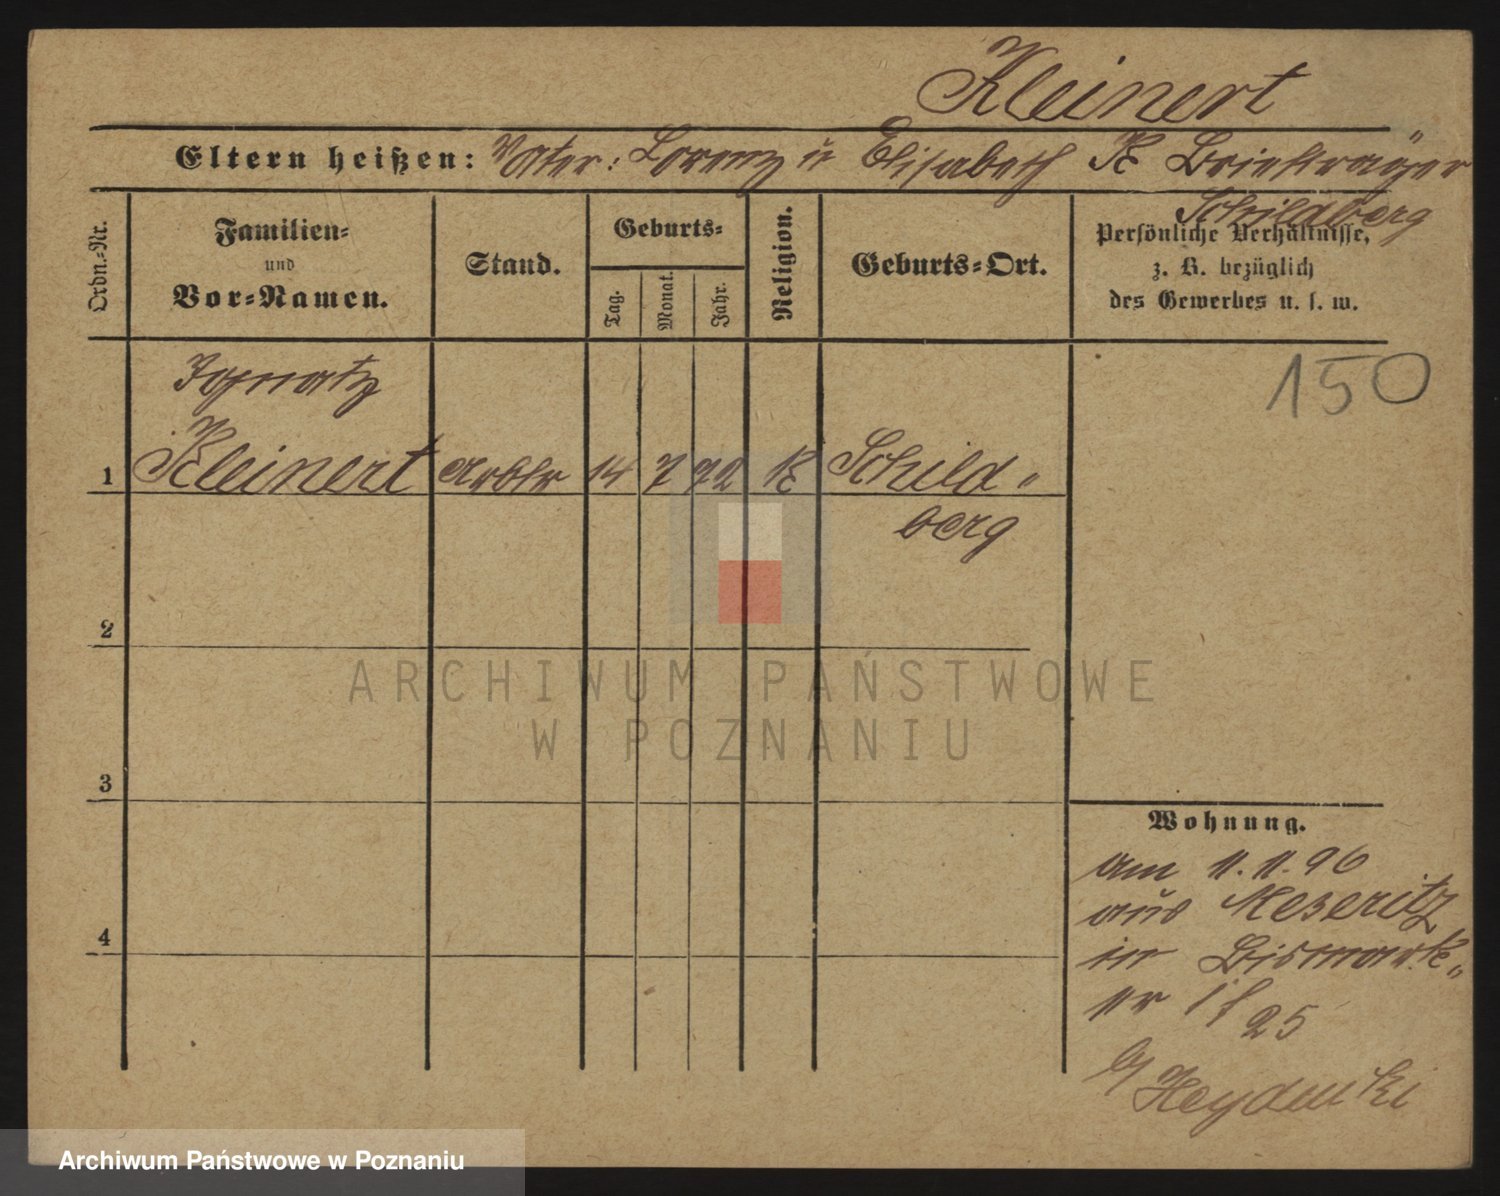 Kleinert
Eltern heißen: Vater: Lorenz ü Elisabeth K Briefträger
Schildberg
Ordn.-Nr.
Familien-
und
Vor-Namen.
Stand.
Geburts-
Tag.
Monat.
Jahr.
Religion.
Geburts-Ort.
Persönliche Verhältnisse,
z. B. bezüglich
des Gewerbes u. s. w.
150
Ignatz
1 Kleinert Arbtr 14 7 72 K Schild-
berg
2
3
4
Wohnung.
am 11.11.96
aus Meseritz
in Bismark-
25
b/ Heydenski
ARCHIWUM PAŃSTWOWE
W POZNANIU
Archiwum Państwowe w Poznaniu